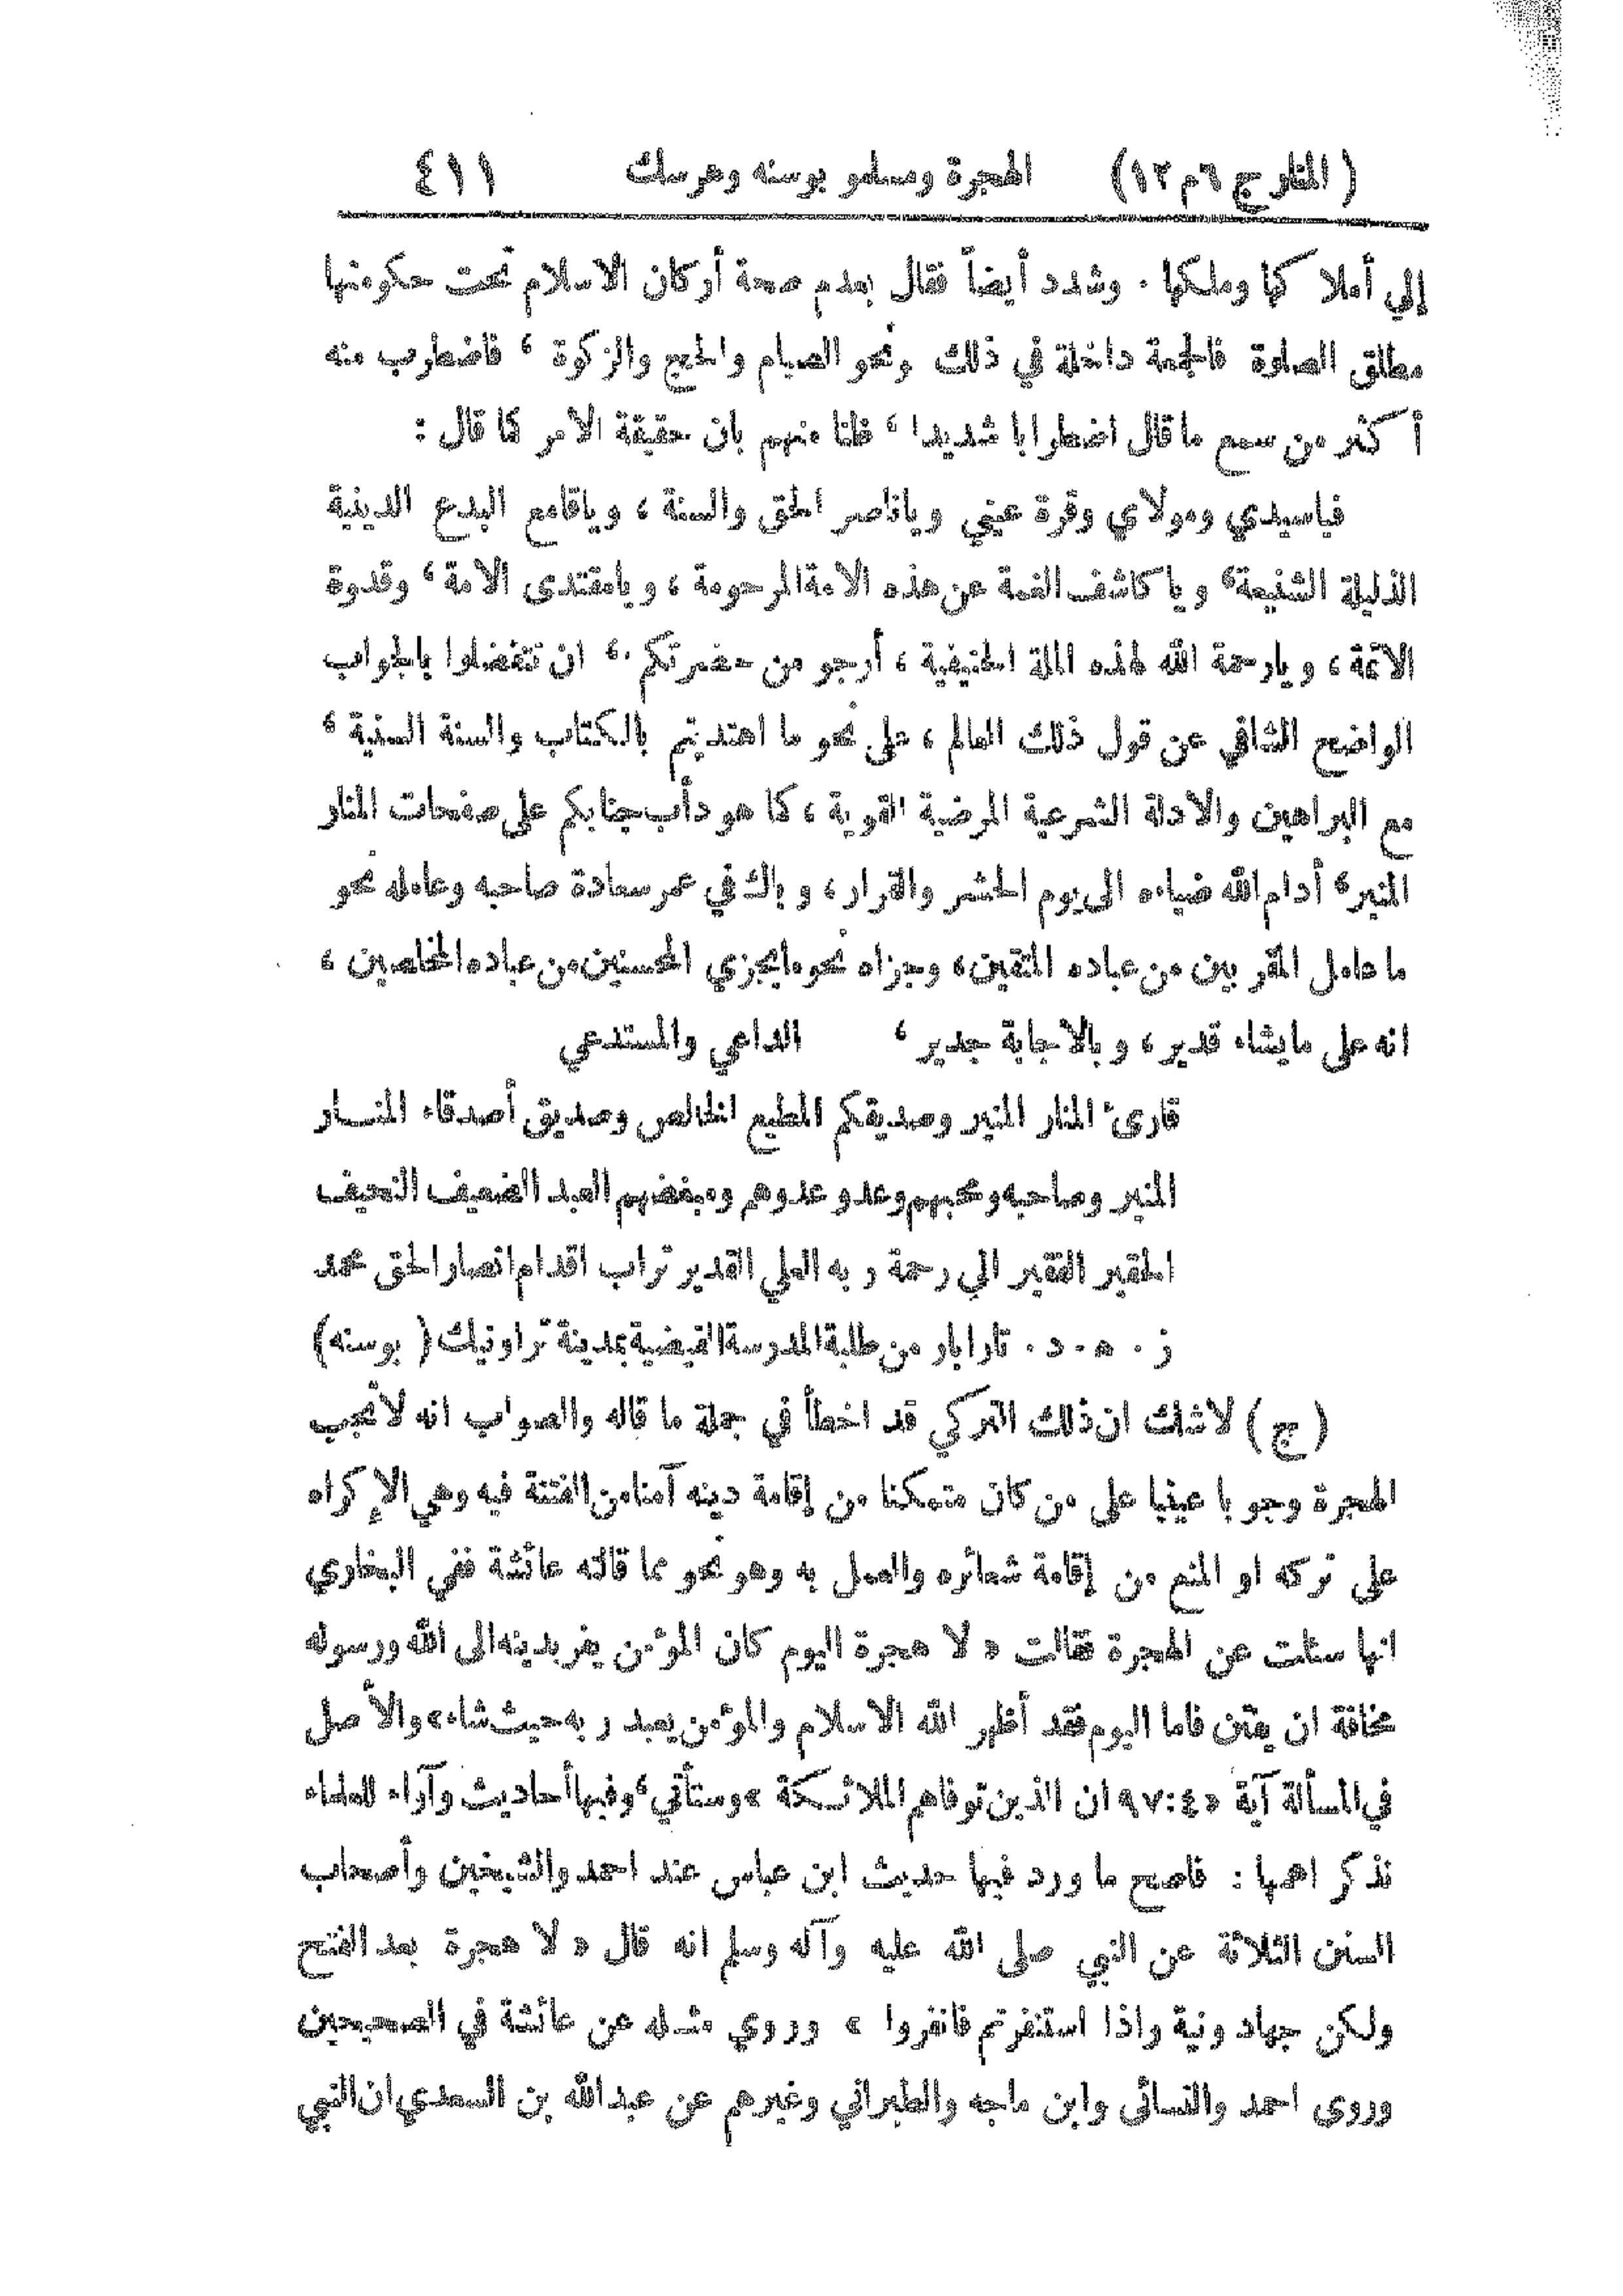 ( المنار ج ٦ م ١٢ ) الهجرة ومسلمو بوسنه وهرسك ٤١١
إلي أملا كها وملكها . وشدد أيضاً فقال بعدم صحة أركان الاسلام تحت حكومتها
مطلق الصلوة فالجمعة داخلة في ذلك ونحو الصيام والحج والزكوة ، فاضطرب منه
أكثر من سمع ما قال اضطرابا شديدا ، ظنا منهم بان حقيقة الامر كما قال :
فياسيدي ومولاي وقرة عيني وياناصر الحق والسنة ، وياقامع البدع الدينية
الذليلة الشنيعة ، ويا كاشف الغمة عن هذه الامة المرحومة ، ويامقتدى الامة ، وقدوة
الائمة ، ويارحمة الله لهذه الملة الحنيفية ، أرجو من حضرتكم ، ان تتفضلوا بالجواب
الواضح الشافي عن قول ذلك العالم ، على نحو ما اهتديتم بالكتاب والسنة السنية ،
مع البراهين والادلة الشرعية المرضية القوية ، كما هو دأب جنابكم على صفحات المنار
المنير ، أدام الله ضياءه الى يوم الحشر والقرار ، وبارك في عمر سعادة صاحبه وعامله نحو
ما عامل المقربين من عباده المتقين ، وجزاه نحو ما يجزي المحسنين من عباده المخلصين ،
انه على مايشاء قدير ، وبالاجابة جدير ، الداعي والمستدعي
قارئ المنار المنير وصديقكم المطيع الخالص وصديق أصدقاء المنار
المنير وصاحبه ومحبهم وعدو عدوهم ومبغضهم العبد الضعيف النحيف
الحقير الفقير الي رحمة ربه العلي القدير تراب اقدام انصار الحق محمد
ز . ه . د . تارابار من طلبة المدرسة الفيضية بمدينة تراونيك ( بوسنه )
( ج ) لاشك ان ذلك التركي قد اخطأ في جملة ما قاله والصواب انه لاتجب
الهجرة وجوبا عينيا على من كان متمكنا من إقامة دينه آمنا من الفتنة فيه وهي الإكراه
على تركه او المنع من إقامة شعائره والعمل به وهو نحو مما قالته عائشة ففي البخاري
انها سئلت عن الهجرة فقالت « لا هجرة اليوم كان المؤمن يفر بدينه الى الله ورسوله
مخافة ان يفتن فاما اليوم فقد أظهر الله الاسلام والمؤمن يعبد ربه حيث شاء » والأصل
في المسألة آية « ٤ : ٩٧ ان الذين توفاهم الملائكة » وستأتي ، وفيها أحاديث وآراء للعلماء
نذكر اهمها : فاصح ما ورد فيها حديث ابن عباس عند احمد والشيخين وأصحاب
السنن الثلاثة عن النبي صلى الله عليه وآله وسلم انه قال « لا هجرة بعد الفتح
ولكن جهاد ونية واذا استنفرتم فانفروا » وروي مثله عن عائشة في الصحيحين
وروى احمد والنسائى وابن ماجه والطبراني وغيرهم عن عبد الله بن السعدي ان النبي